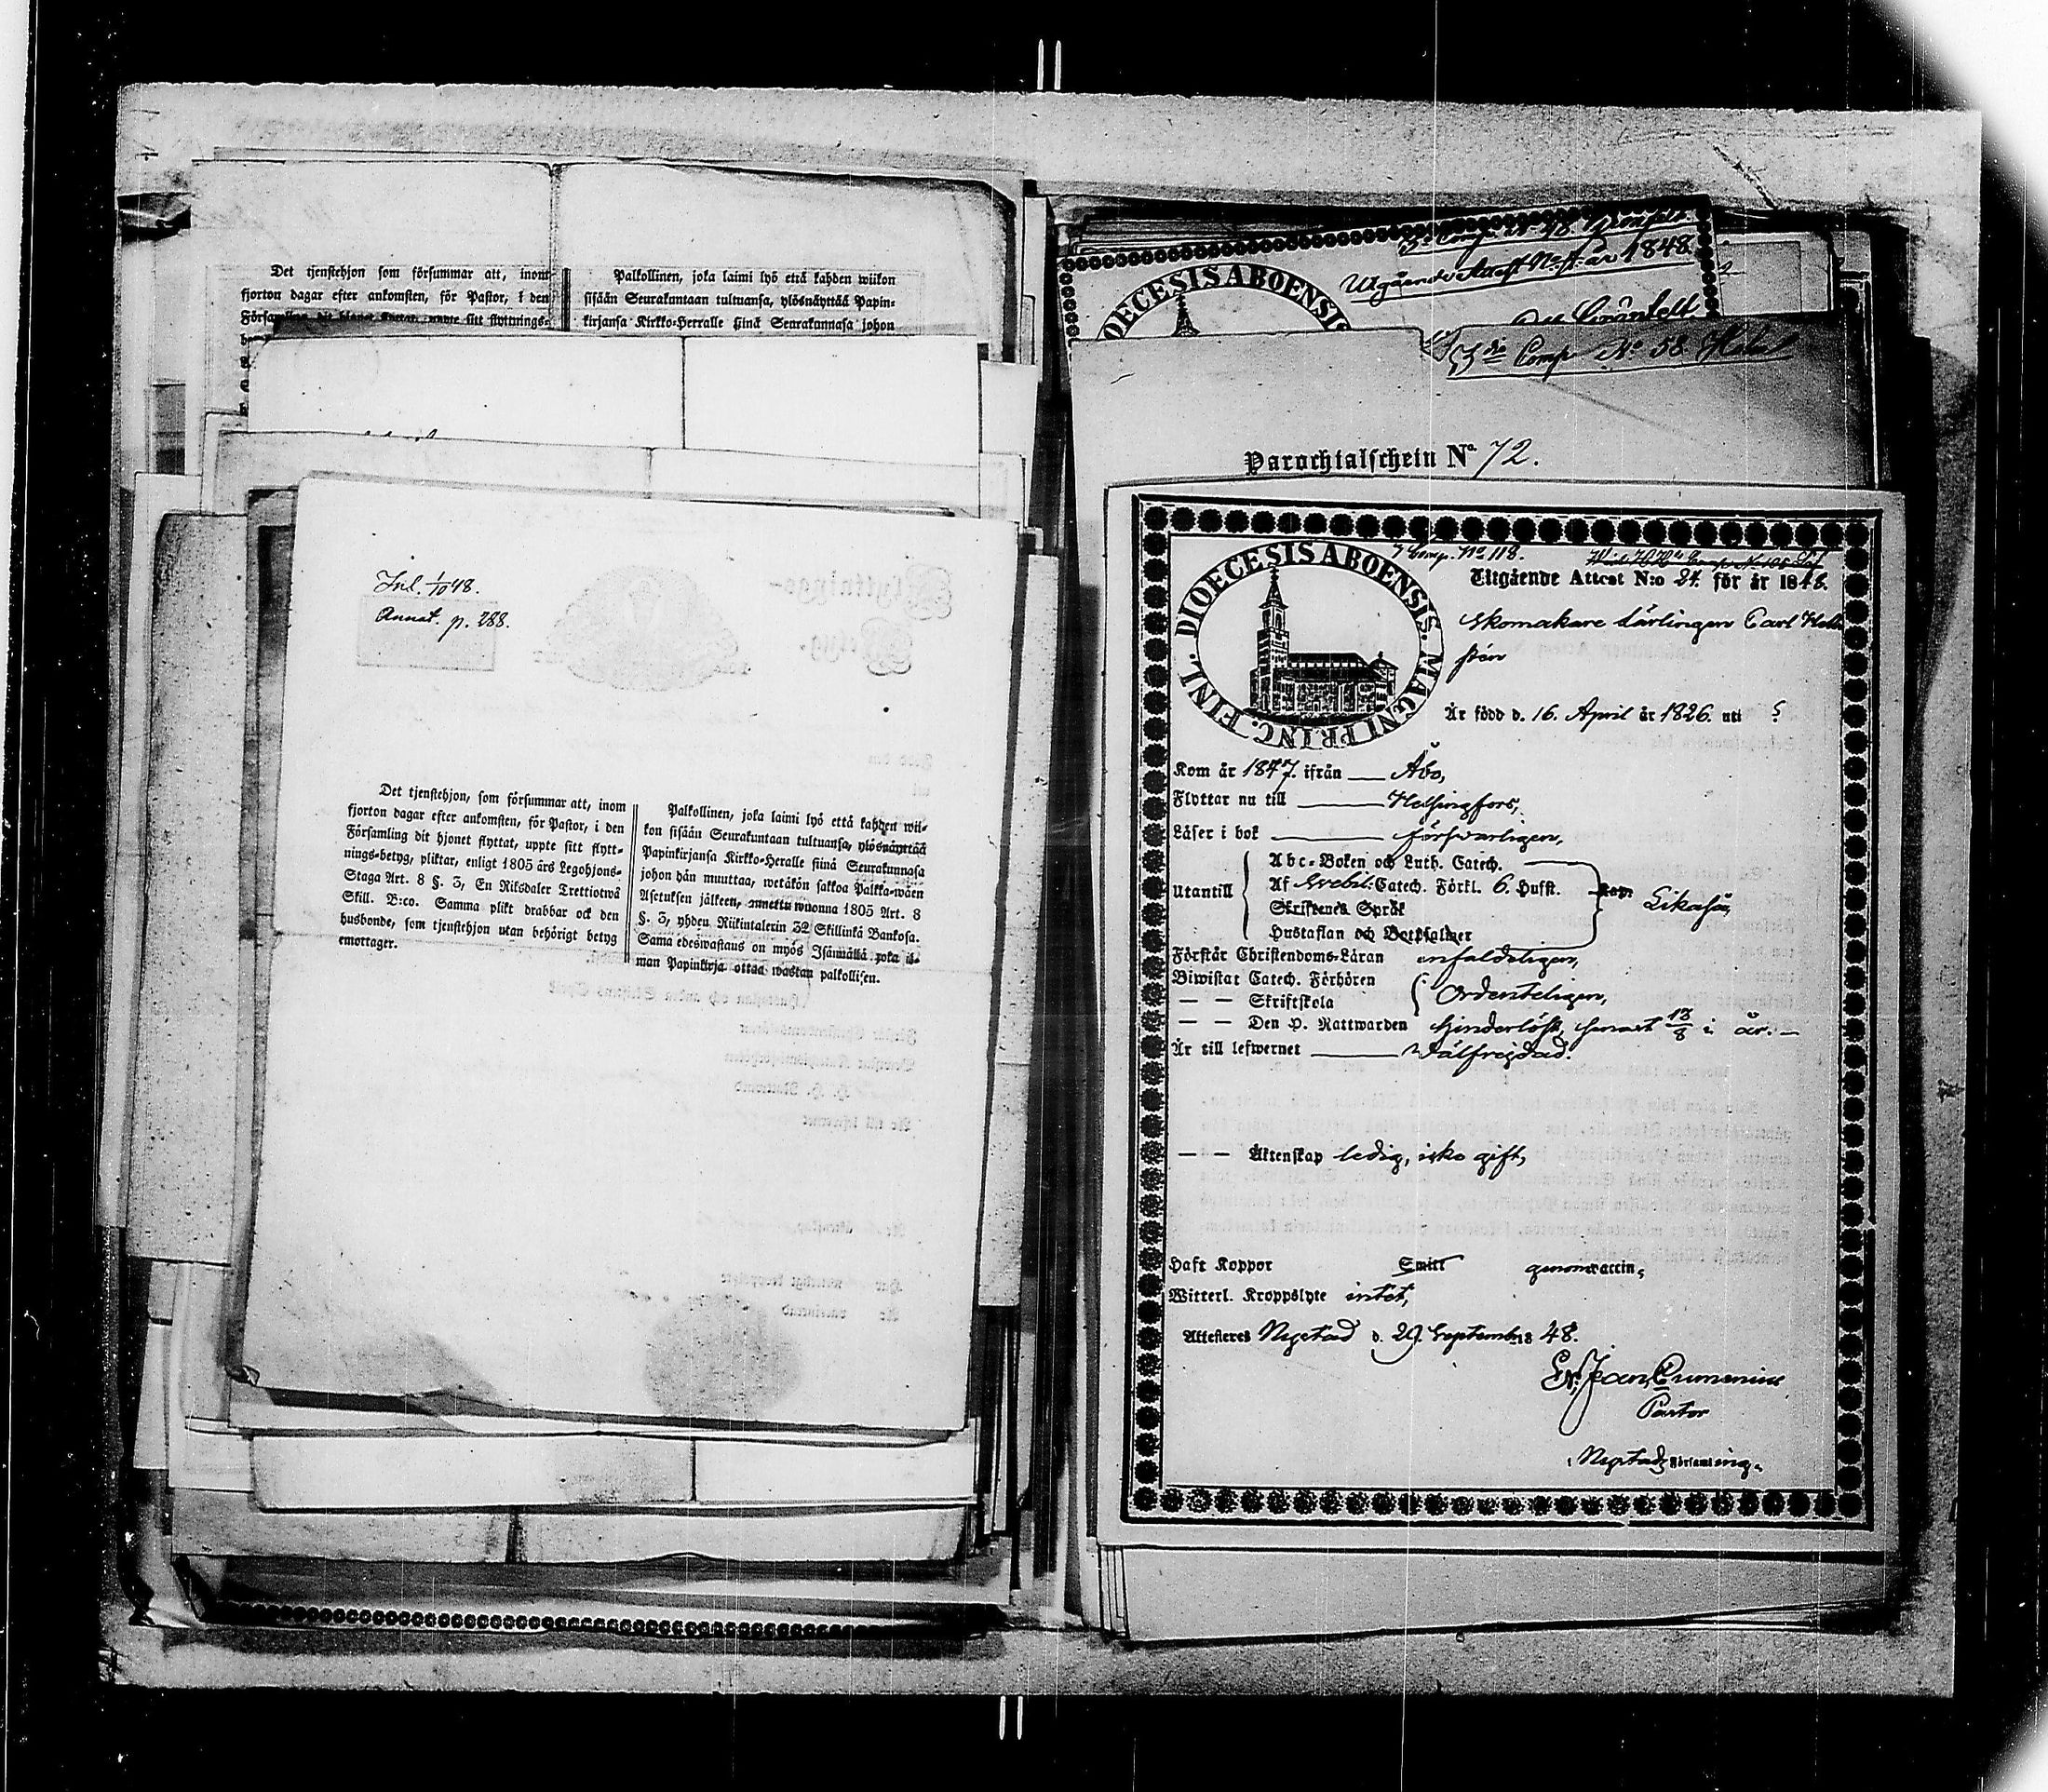 Det tjenstehjon som försummar att, inom
fjorton dagar efter ankomsten, för Pastor, i den
Palkollinen, joka laimi lyö että kahden wiikon
sisään Seurakuntaan tultuansa, ylösnäyttää Papin-
kirjansa Kirkko-Herralle siinä Seurakunnasa johon
Inl. 1/10 48.
Annot. p. 288.
Det tjenstehjon, som försummar att, inom
fjorton dagar efter ankomsten, för Pastor, i den
Församling dit hjonet flyttat, uppte sitt flytt-
nings-betyg, pliktar, enligt 1805 års Legohjons-
Staga Art. 8 §. 3, En Riksdaler Trettiotwå
Skill. B:co. Samma plikt drabbar ock den
husbonde, som tjenstehjon utan behörigt betyg
emottager.
Palkollinen, joka laimi lyö että kahden wii-
kon sisään Seurakuntaan tultuansa, ylösnäyttää
Papinkirjansa Kirkko-Heralle siinä Seurakunnasa
johon hän muuttaa, wetäkön sakkoa Palkka-wäen
Asetuksen jälkeen, annettu wuonna 1805 Art. 8
§. 3, yhden Riikintalerin 32 Skillinkä Bankosa.
Sama edeswastaus on myös Isännällä joka il-
man Papinkirja ottaa wastan palkollisen.
Utgående Attest No år 1848.
DIOECESIS ABOENSIS
3die Comp No 58
Parochialschein No. 72.
7 Comp. No 118.
Utgående Attest N:o 24. för år 1848.
DIOECESIS ABOENSIS. MAGNI PRINC. FINL.
Skomakare lärlingen Carl Hell
stén
Är född d. 16. April år 1826. uti ?
Kom år 1847. ifrån Åbo,
Flyttar nu till Helsingfors,
Läser i bok förswarligen,
Utantill
Abc-Boken och Luth. Catech.
Af Svebil: Catech. Förkl. 6. Hufst. Kap: Likaså,
Skriftenes Språk
Hustaflan och Botpsalmer
Förstår Christendoms-Läran enfaldeligen,
Biwistat Catech. Förhören
— — Skriftskola Ordenteligen,
— — Den H. Nattwarden hinderlöst, senast 13/8 i år. —
Är till lefwernet wälfrejdad.
— — Äktenskap ledig, icke gift,
Haft Koppor Smitt genom vaccin,
Witterl. Kroppslyte intet,
Attesteras Nystad d. 29. September 1848.
Pastor
i Nystads Församling.